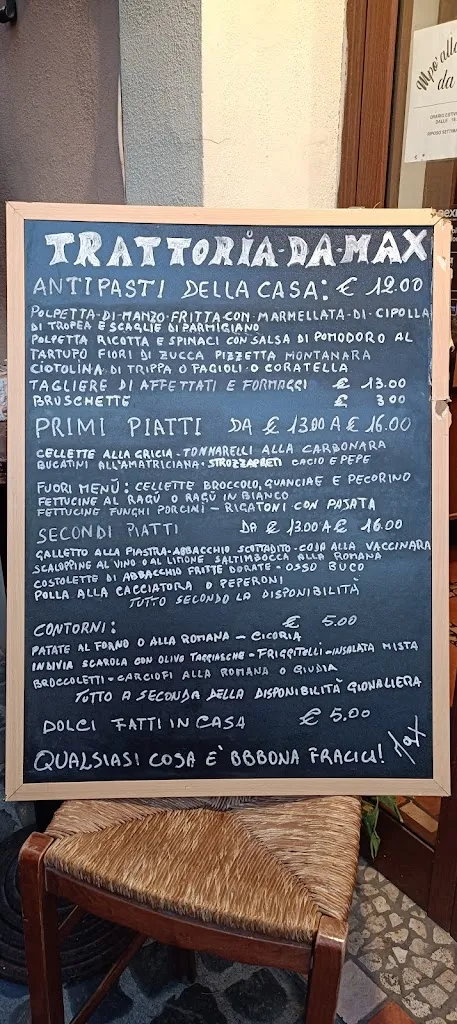 Mpo' alle
da
TRATTORIA-DA-MAX
ANTIPASTI DELLA CASA: € 12.00
POLPETTA-DI-MANZO-FRITTA-CON-MARMELLATA-DI-CIPOLLA
DI TROPEA E SCAGLIE DI PARMIGIANO
POLPETTA RICOTTA E SPINACI CON SALSA DI POMODORO AL
TARTUFO FIORI DI ZUCCA PIZZETTA MONTANARA
CIOTOLINA DI TRIPPA O FAGIOLI O CORATELLA
TAGLIERE DI AFFETTATI E FORMAGGI € 13.00
BRUSCHETTE € 300
PRIMI PIATTI DA € 13.00 A € 16.00
CELLETTE ALLA GRICIA - TONNARELLI ALLA CARBONARA
BUCATINI ALL'AMATRICIANA - STROZZAPRETI CACIO E PEPE
FUORI MENÙ: CELLETTE BROCCOLO, GUANCIAE E PECORINO
FETTUCINE AL RAGÙ O RAGÙ IN BIANCO
FETTUCCINE FUNGHI PORCINI - RIGATONI CON PAJATA
SECONDI PIATTI DA € 13.00 A € 16.00
GALLETTO ALLA PIASTRA-ABBACCHIO SCOTTADITO-CODA ALLA VACCINARA
SCALOPPINE AL VINO O AL LIMONE SALTIMBOCCA ALLA ROMANA
COSTOLETTE DI ABBACCHIO FRITTE DORATE - OSSO BUCO
POLLA ALLA CACCIATORA O PEPERONI
TUTTO SECONDO LA DISPONIBILITÀ
CONTORNI: € 5.00
PATATE AL FORNO O ALLA ROMANA - CICORIA
INDIVIA SCAROLA CON OLIVE TAGGIASCHE - FRIGGITELLI - INSALATA MISTA
BROCCOLETTI - CARCIOFI ALLA ROMANA O GIUDIA
TUTTO A SECONDA DELLA DISPONIBILITÀ GIONALIERA
DOLCI FATTI IN CASA € 5.00
QUALSIASI COSA E' BBBONA FRACICA! Max